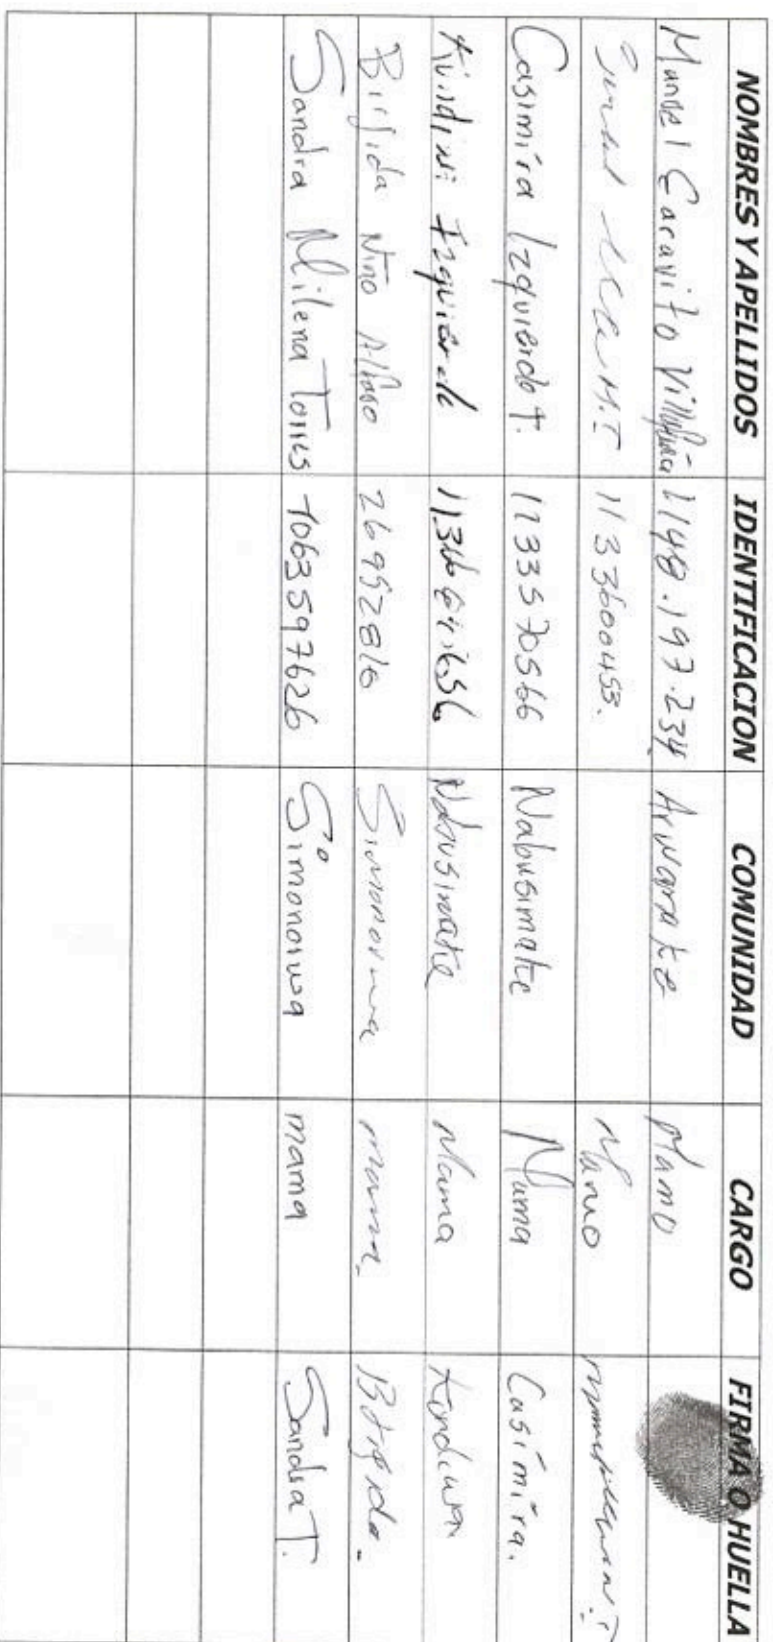 NOMBRES Y APELLIDOS IDENTIFICACION COMUNIDAD CARGO FIRMA O HUELLA
Manuel Garavito Villafaña 1148.197.234 Arwarake Mamo
1133600453. Mamo
Casimira Izquierdo T. 1133570566 Nabusimake Mama Casimira.
Izquierdo Nabusimake Mama
Birjida Niño Alfaro 26952816 Simonorwa mama.
Sandra Milena Torres 1063597626 Simonorwa mama Sandra T.